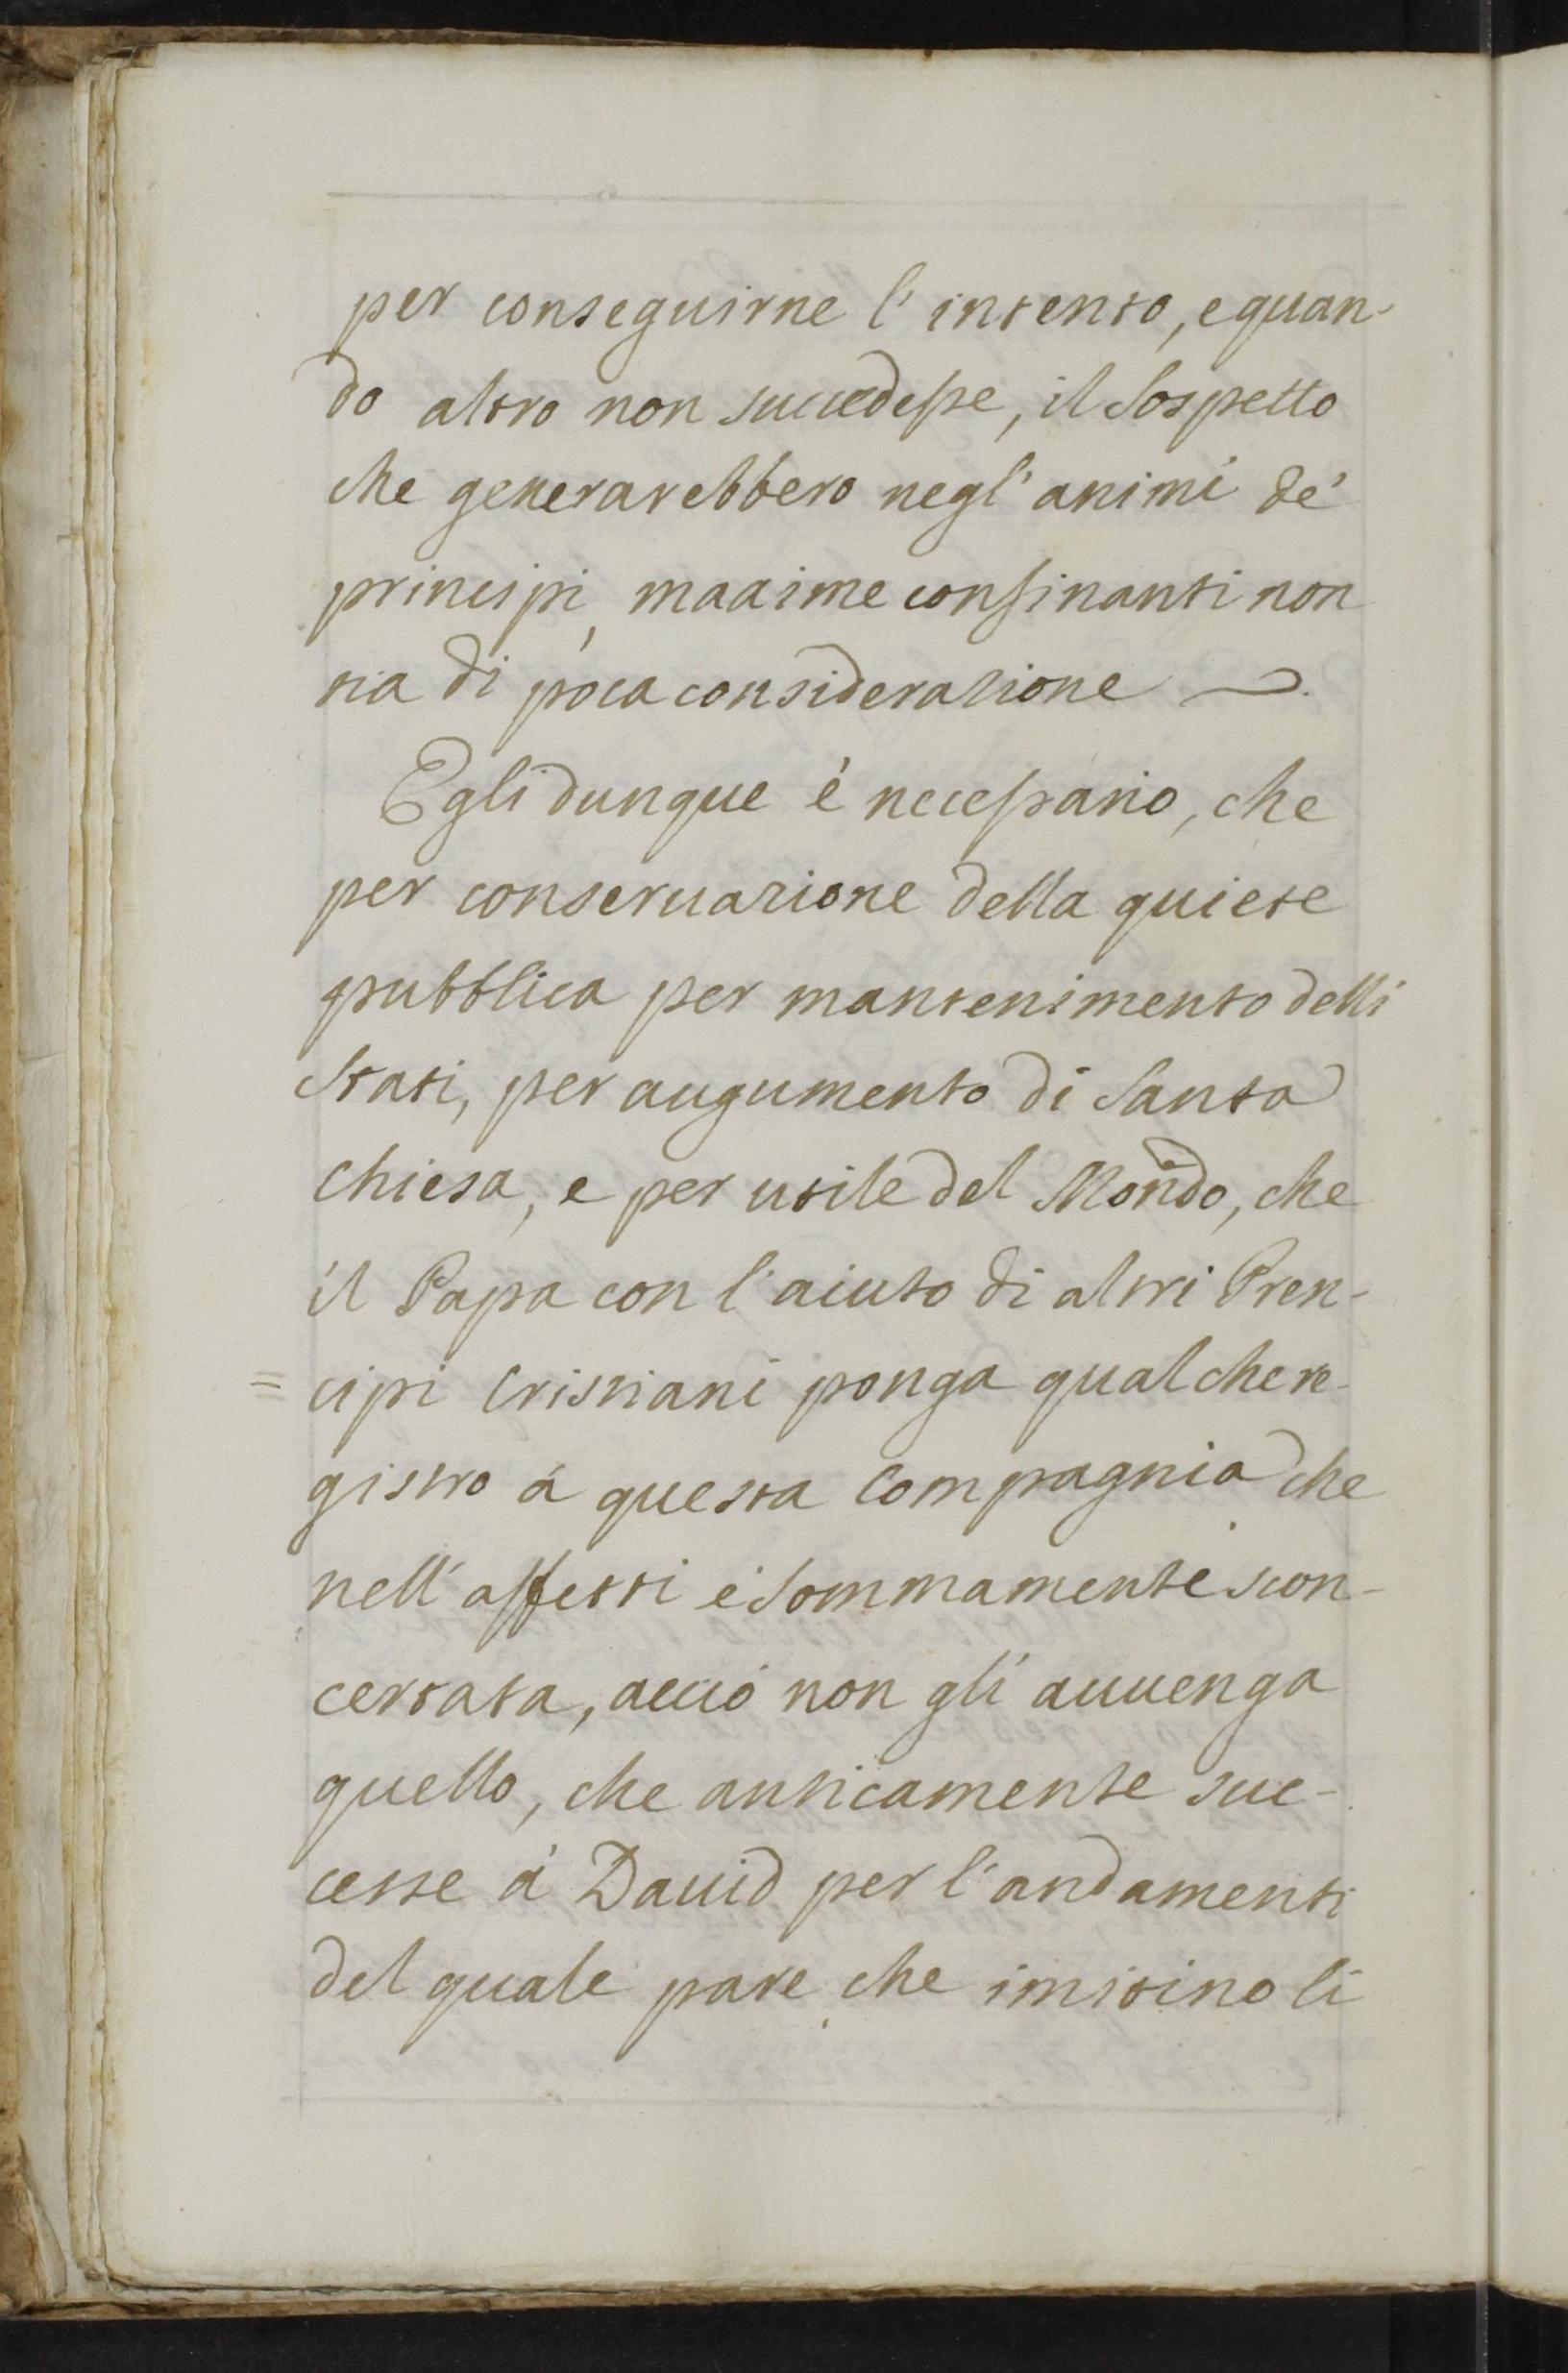 per conseguirne l'intento, e quan-
do altro non succedesse, il Sospetto
che generarebbero negl'animi de'
principi, maxime confinanti non
sia di poca consideratione
Egli dunque è necessario, che
per conseruazione della quiete
pubblica per mantenimento delli
Stati, per augumento di Santa
Chiesa, e per utile del Mondo, che
il Papa con l'aiuto di altri Pren-
= cipi Cristiani ponga qualche re-
gistro à questa Compagnia che
nell'affetti è Sommamente scon-
certata, acciò non gli auuenga
quello, che anticamente suc-
cesse à Dauid per l'andamenti
del quale pare che imitino li